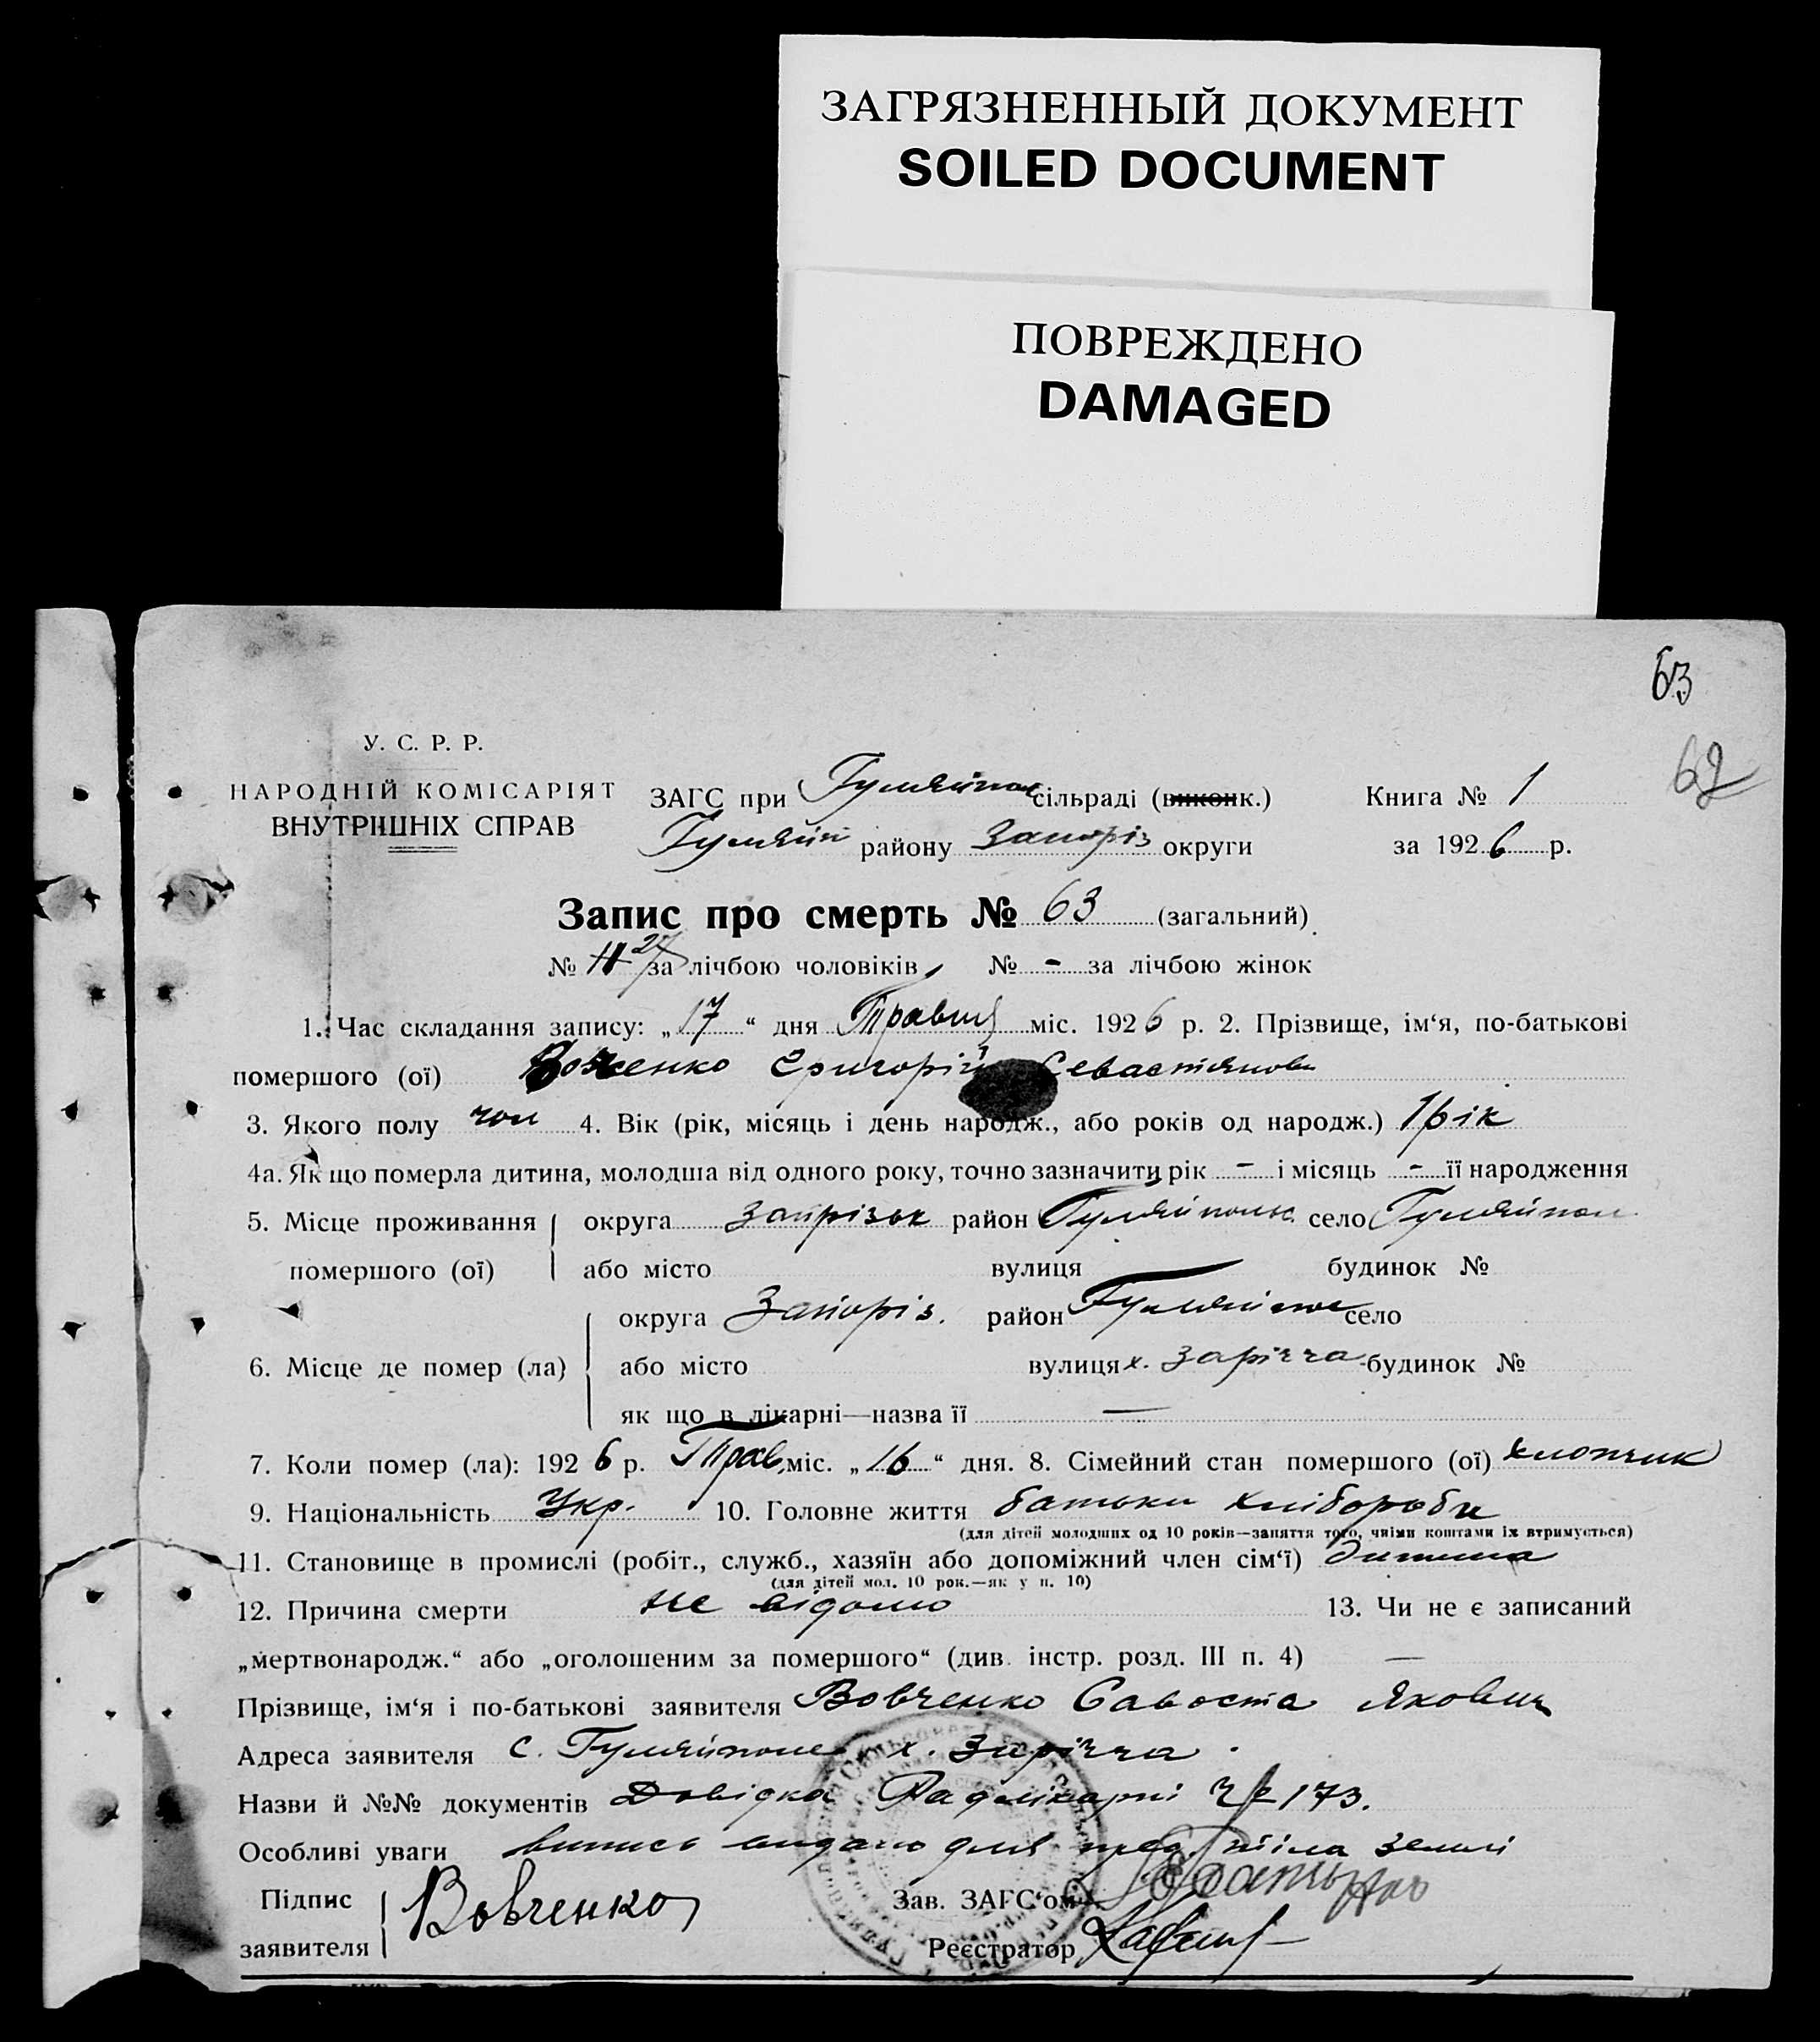 ЗАГРЯЗНЕННЫЙ ДОКУМЕНТ
SOILED DOCUMENT
ПОВРЕЖДЕНО
DAMAGED
63
62
У. С. Р. Р.
НАРОДНІЙ КОМІСАРІЯТ
ВНУТРІШНІХ СПРАВ
ЗАГС при Гуляйпол сільраді (виконк.) Книга № 1
Гуляйп району Запоріз округи за 1926 р.
Запис про смерть № 63 (загальний)
№ 27 за лічбою чоловіків, № - за лічбою жінок
1. Час складання запису: „17“ дня Травня міс. 1926 р. 2. Прізвище, ім‘я, по-батькові
помершого (ої) Вовченко Григорій Севастянови
3. Якого полу чол 4. Вік (рік, місяць і день народж., або років од народж.) 1 рік
4а. Як що померла дитина, молодша від одного року, точно зазначити рік - і місяць - її народження
5. Місце проживання округа Запрізьк район Гуляйпольс село Гуляйпол
помершого (ої) або місто вулиця будинок №
округа Запоріз. район Гуляйпол село
6. Місце де помер (ла) або місто вулиця х. Зарічча будинок №
як що в лікарні—назва її —
7. Коли помер (ла): 1926 р. Трав. міс. „16“ дня. 8. Сімейний стан помершого (ої) хлопчик
9. Національність Укр. 10. Головне життя батьки хлібороби
(для дітей молодших од 10 років—заняття того, чиїми коштами їх втримується)
11. Становище в промислі (робіт., служб., хазяїн або допоміжний член сім‘ї) дитина
(для дітей мол. 10 рок.—як у п. 10)
12. Причина смерти не відомо 13. Чи не є записаний
„мертвонародж.“ або „оголошеним за помершого“ (див. інстр. розд. III п. 4) —
Прізвище, ім‘я і по-батькові заявителя Вовченко Савоста Якович
Адреса заявителя с. Гуляйполе х. Зарічча.
Назви й №№ документів Довідка Радлікарні 173.
Особливі уваги випись видано для пред. тіла землі
Підпис Вовченко Зав. ЗАГС‘ом
заявителя Реєстратор